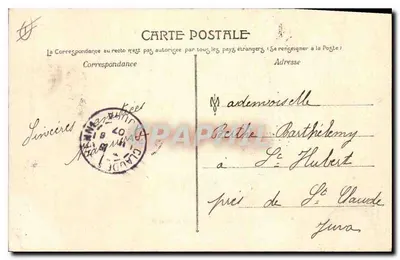 CARTE POSTALE
La Correspondance au recto n'est pas autorisée par tous les pays étrangers (Se renseigner à la Poste)
Correspondance
Adresse
Sincères
Mademoiselle
Barthélemy
à St Hubert
près de St Claude
Jura